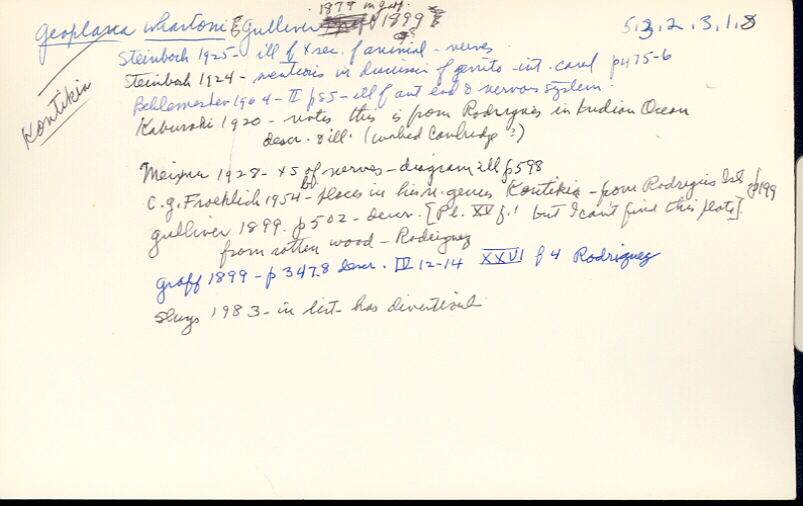 1879 in Graff
Geoplana whartoni Gulliver 1899 5.3.2.3.1.8
Kontikia
Steinboch 1925 - ill of x sec. of animal - nerves
Steinboch 1924 - mentions in discussion of genito-int. canal p475-6
1964 - II p55 - ill of ant end & nervous system
Kaburaki 1920 - notes this is from Rodriguez in Indian Ocean
descr. & ill. (worked Cambridge?)
Meixner 1928 - xs of nerves - diagram ill p598
C.G. Froehlich 1954 - places in his n. genus Kontikia - from Rodriguez Isl. p199
Gulliver 1899. p502 - descr. [Pl. XV f.1 but I can't find this plate].
from rotten wood - Rodriguez
Graff 1899 - p347.8 descr. IV 12-14 XXVI f4 Rodriguez
Sluys 1983 - in list - has diverticul